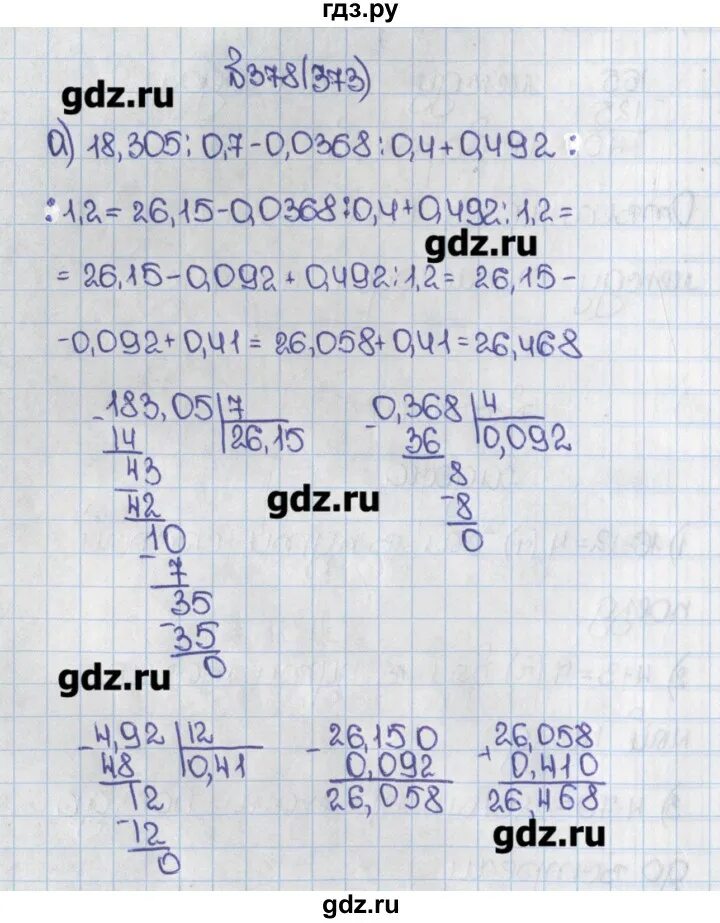 гдз.ру
В378(373)
gdz.ru
а) 18,305 : 0,7 - 0,0368 : 0,4 + 0,492 :
: 1,2 = 26,15 - 0,0368 : 0,4 + 0,492 : 1,2 =
gdz.ru
= 26,15 - 0,092 + 0,492 : 1,2 = 26,15 -
- 0,092 + 0,41 = 26,058 + 0,41 = 26,468
- 183,05 | 7
14 | 26,15
- 43
42
- 10
7
- 35
35
0
- 0,368 | 4
36 | 0,092
- 8
8
0
gdz.ru
gdz.ru
- 4,92 | 12
48 | 0,41
- 12
12
0
- 26,150
0,092
26,058
+ 26,058
0,410
26,468
gdz.ru
gdz.ru